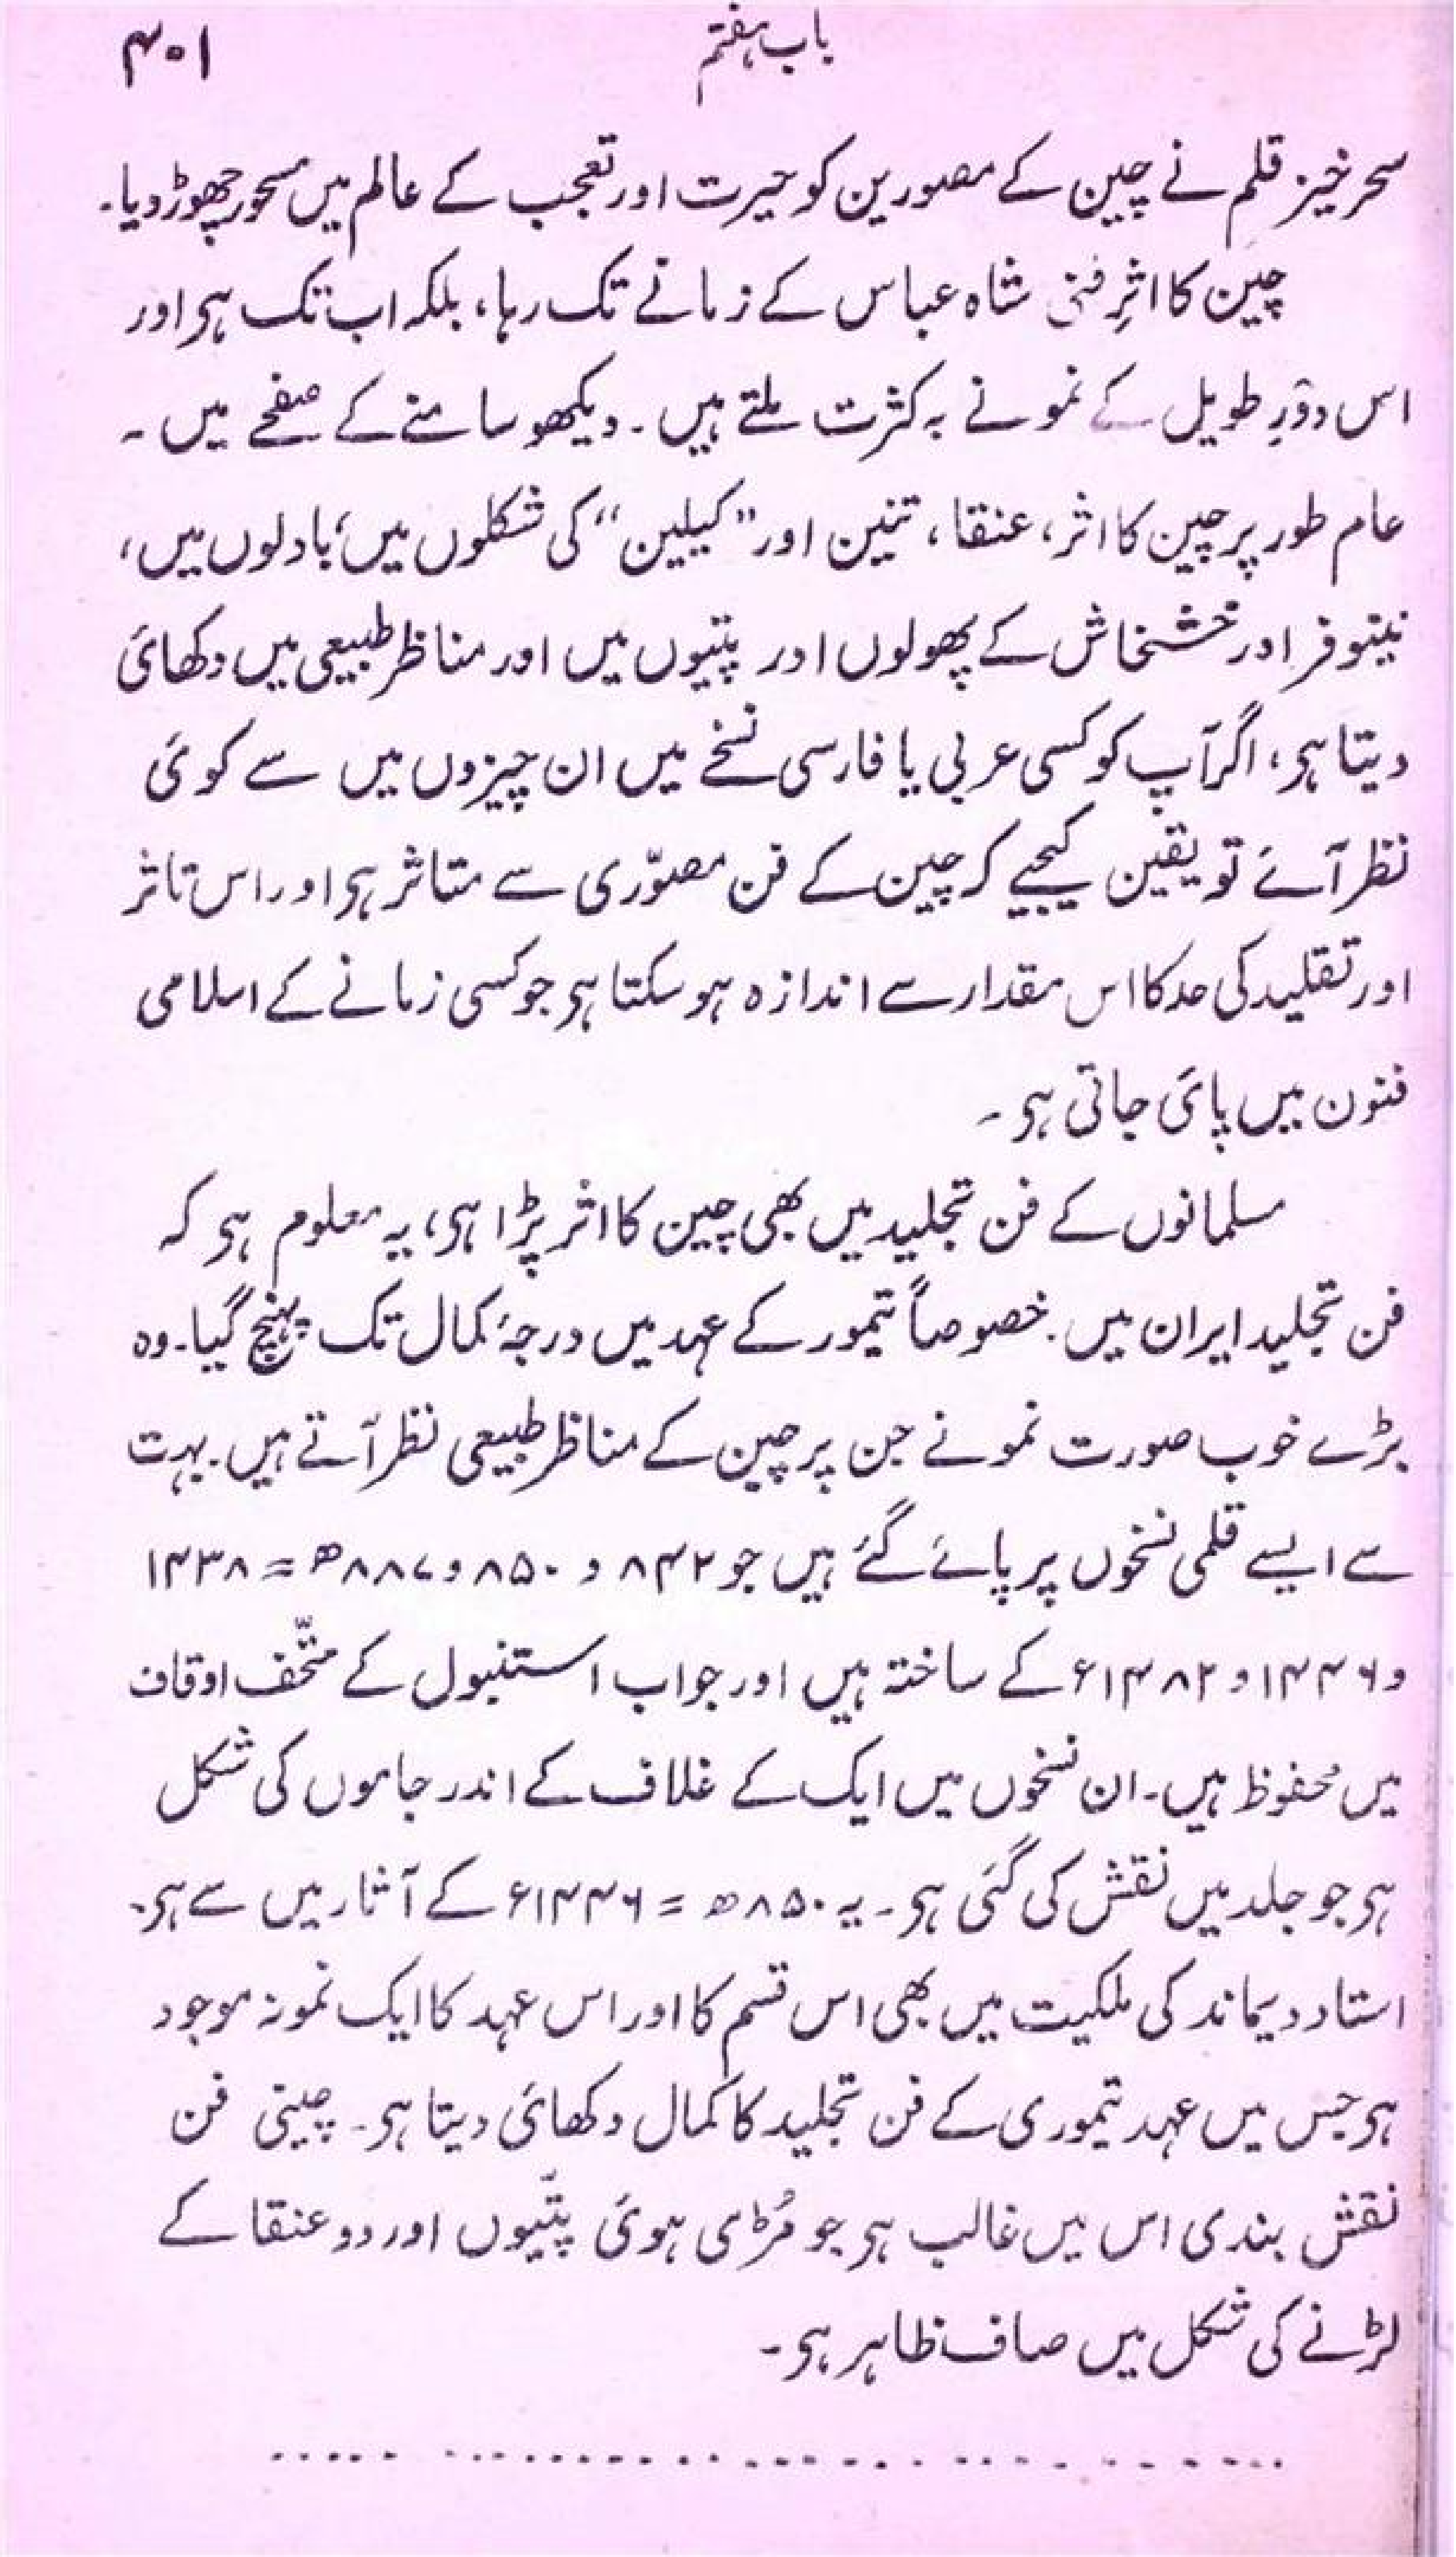 باب ہفتم
۴۰۱
سحر خیز قلم نے چین کے مصورین کو حیرت اور تعجب کے عالم میں مسحور چھوڑ دیا۔
چین کا اثرِ فنی شاہ عباس کے زمانے تک رہا، بلکہ اب تک ہی اور
اس دورِ طویل کے نمونے بہ کثرت ملتے ہیں۔ دیکھو سامنے کے صفحے میں۔
عام طور پر چین کا اثر، عنقا، تنین اور ”کیلین“ کی شکلوں میں، بادلوں میں،
نیلوفر اور خشخاش کے پھولوں اور پتیوں میں اور مناظر طبیعی میں دکھائ
دیتا ہی، اگر آپ کو کسی عربی یا فارسی نسخے میں ان چیزوں میں سے کوئ
نظر آئے تو یقین کیجیے کہ چین کے فن مصوّری سے متاثر ہی اور اس تاثر
اور تقلید کی حد کا اس مقدار سے اندازہ ہو سکتا ہی جو کسی زمانے کے اسلامی
فنون میں پائ جاتی ہی۔
مسلمانوں کے فن تجلید میں بھی چین کا اثر پڑا ہی، یہ معلوم ہی کہ
فن تجلید ایران میں۔ خصوصاً تیمور کے عہد میں درجۂ کمال تک پہنچ گیا۔ وہ
بڑے خوب صورت نمونے جن پر چین کے مناظر طبیعی نظر آتے ہیں۔ بہت
سے ایسے قلمی نسخوں پر پائے گئے ہیں جو ۸۴۲ و ۸۵۰ و ۸۸۷ھ = ۱۴۳۸
و ۱۴۴۶ و ۱۴۸۲ء کے ساختہ ہیں اور جو اب استنبول کے متّحف اوقاف
میں محفوظ ہیں۔ ان نسخوں میں ایک کے غلاف کے اندر جاموں کی شکل
ہی جو جلد میں نقش کی گئی ہی۔ یہ ۸۵۰ھ = ۱۴۴۶ء کے آثار میں سے ہی۔
استاد دیماند کی ملکیت میں بھی اس قسم کا اور اس عہد کا ایک نمونہ موجود
ہی جس میں عہد تیموری کے فن تجلید کا کمال دکھائ دیتا ہی۔ چینی فن
نقش بندی اس میں غالب ہی جو مُڑی ہوئ پتّیوں اور دو عنقا کے
لڑنے کی شکل میں صاف ظاہر ہی۔